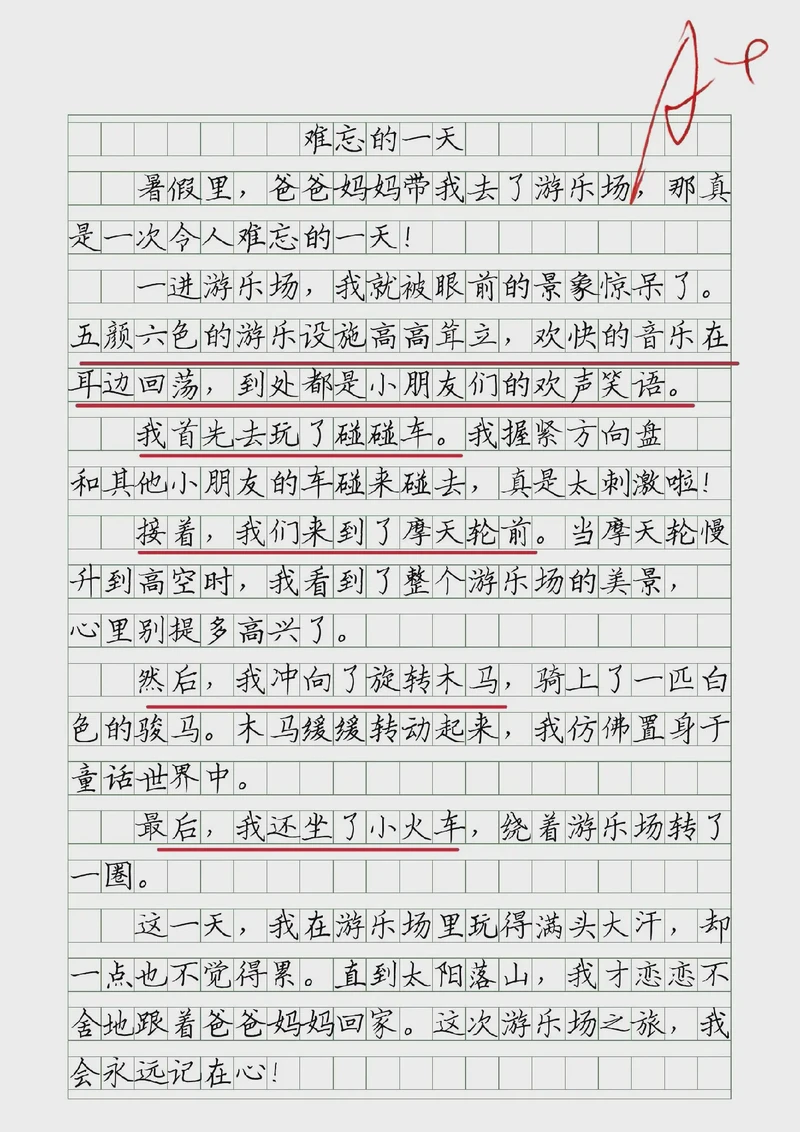 A+
难忘的一天
暑假里，爸爸妈妈带我去了游乐场，那真
是一次令人难忘的一天！
一进游乐场，我就被眼前的景象惊呆了。
五颜六色的游乐设施高高耸立，欢快的音乐在
耳边回荡，到处都是小朋友们的欢声笑语。
我首先去玩了碰碰车。我握紧方向盘
和其他小朋友的车碰来碰去，真是太刺激啦！
接着，我们来到了摩天轮前。当摩天轮慢
升到高空时，我看到了整个游乐场的美景，
心里别提多高兴了。
然后，我冲向了旋转木马，骑上了一匹白
色的骏马。木马缓缓转动起来，我仿佛置身于
童话世界中。
最后，我还坐了小火车，绕着游乐场转了
一圈。
这一天，我在游乐场里玩得满头大汗，却
一点也不觉得累。直到太阳落山，我才恋恋不
舍地跟着爸爸妈妈回家。这次游乐场之旅，我
会永远记在心！